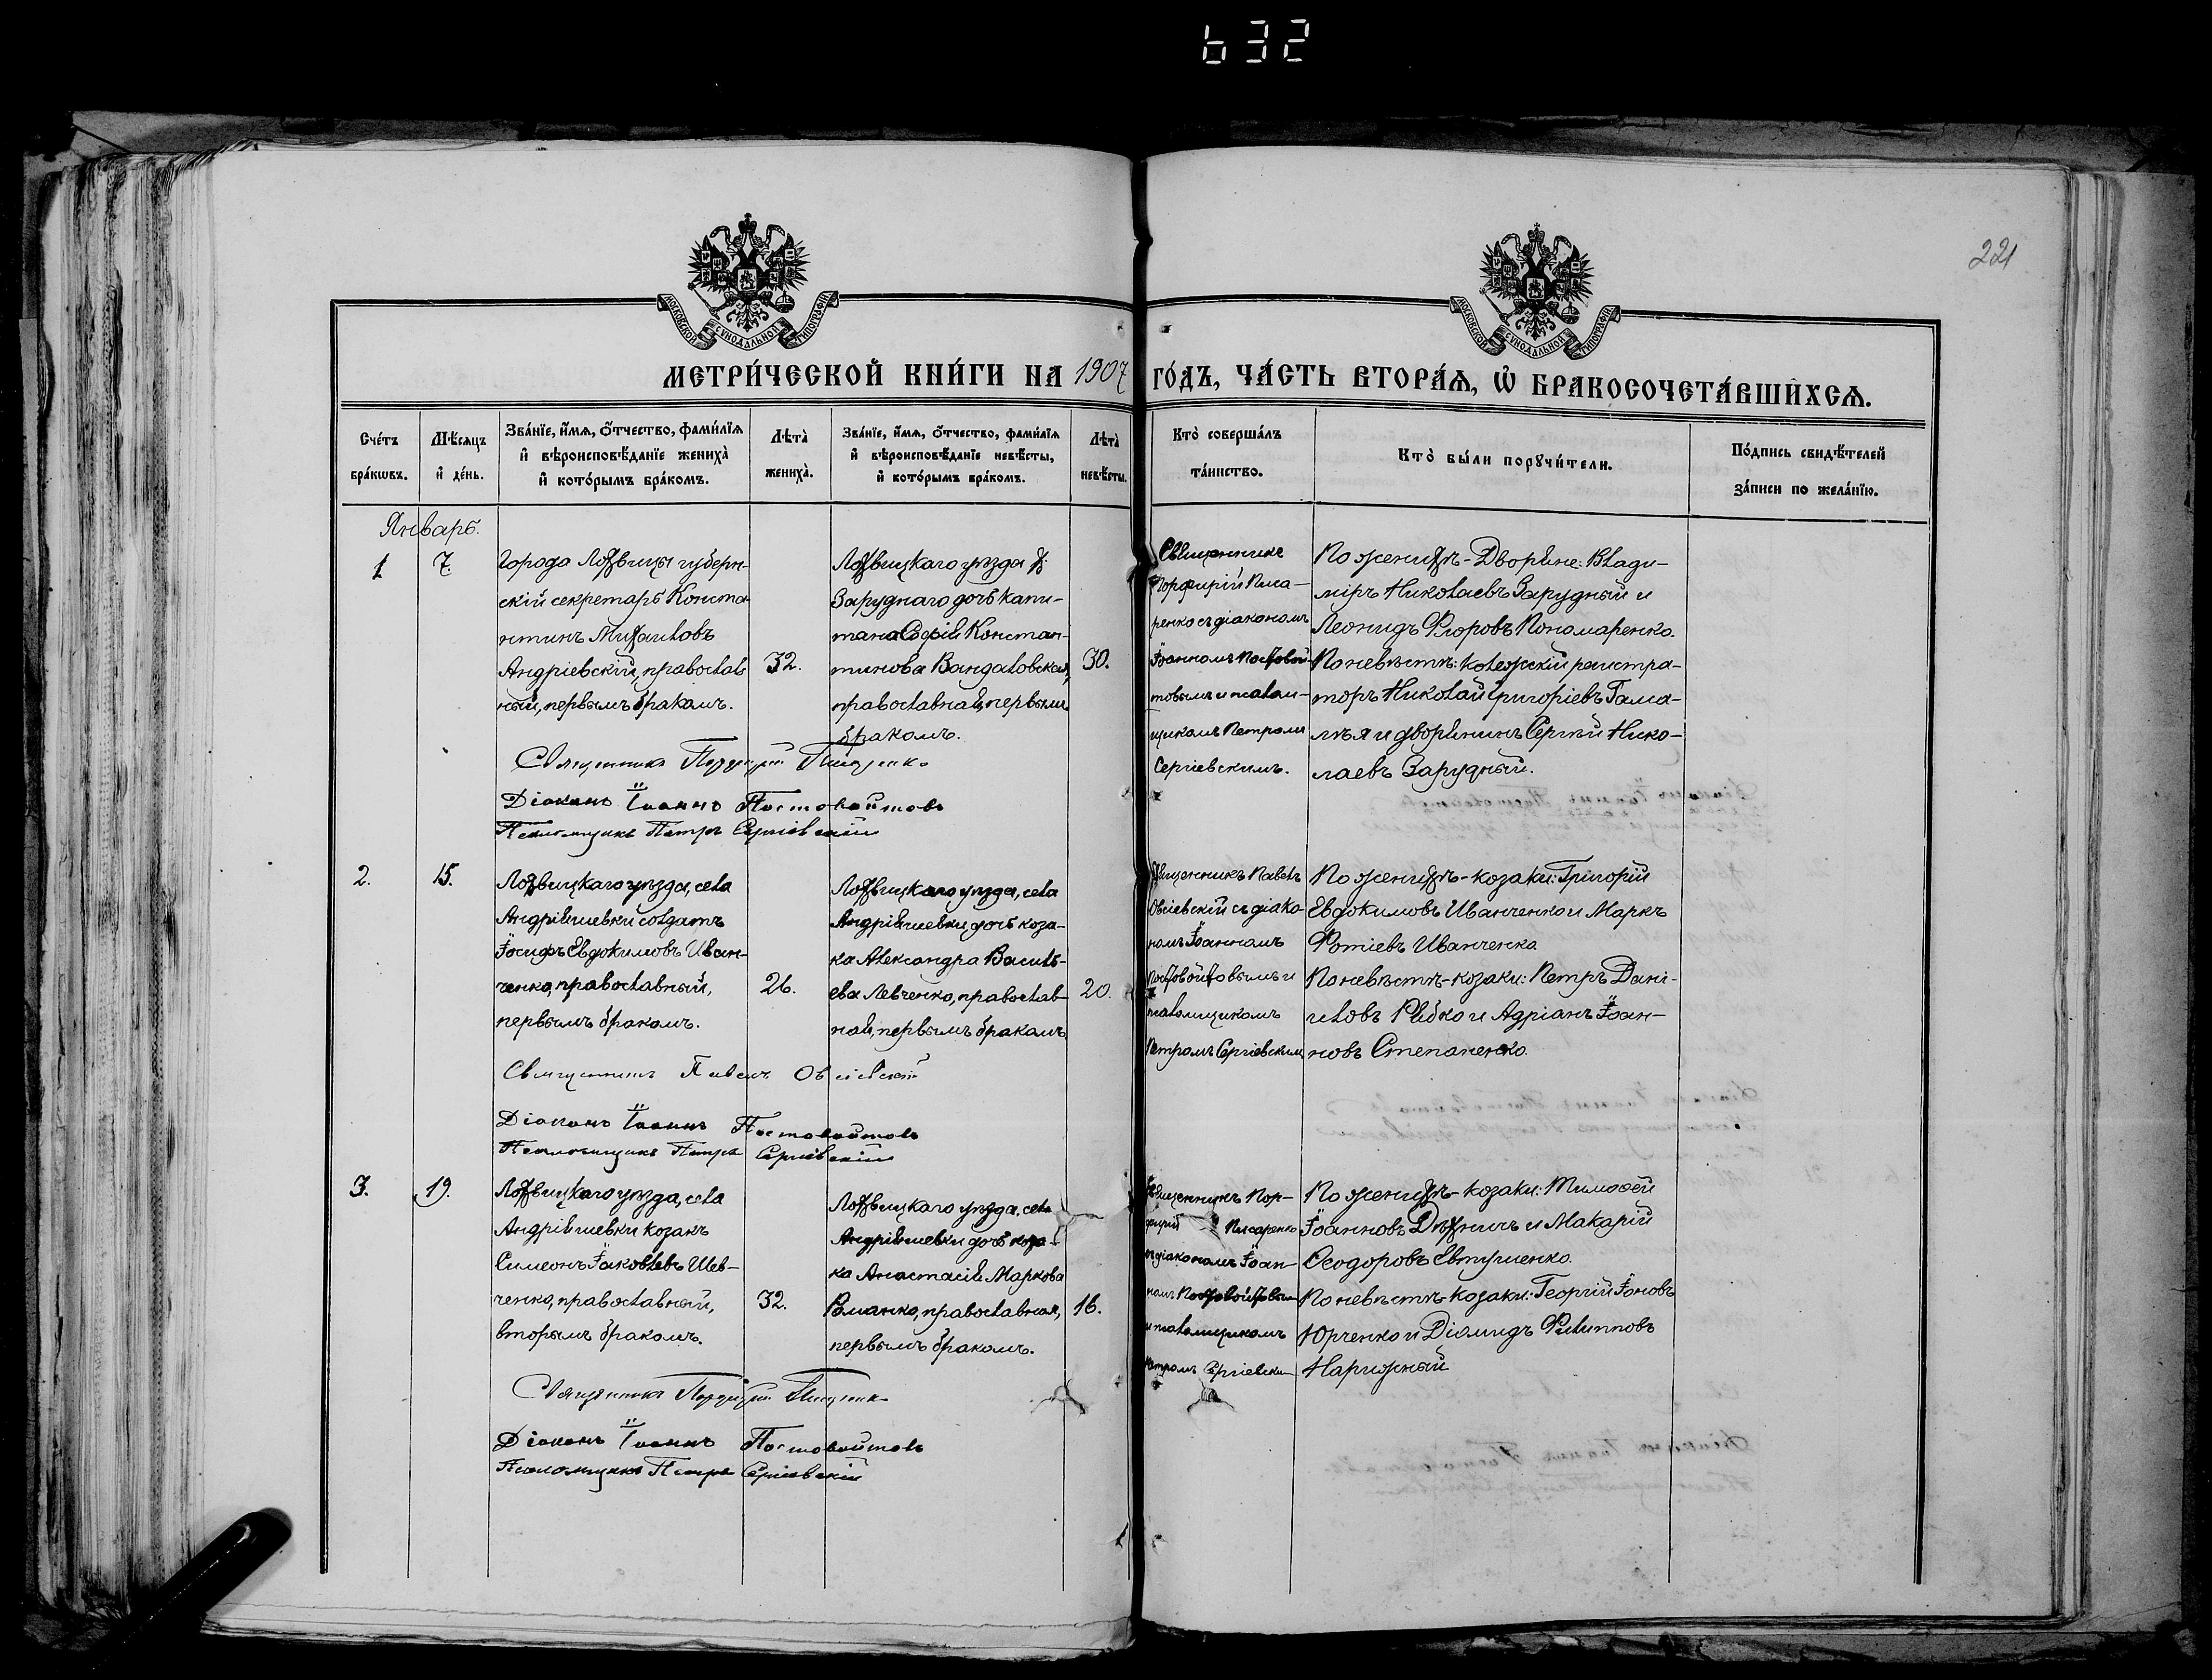 632
221
МОСКОВСКОЙ СѴНОДАЛЬНОЙ ТИПОГРАФІИ
МОСКОВСКОЙ СѴНОДАЛЬНОЙ ТИПОГРАФІИ
МЕТРИ́ЧЕСКОЙ КНИ́ГИ НА 1907 ГО́ДЪ, ЧА́СТЬ ВТОРА́Ѧ, Ѡ҆ БРАКОСОЧЕТА́ВШИХСѦ.
Сче́тъ
бра́кѡвъ.
Мѣ́сяцъ
и҆ де́нь.
Зва́нїе, и҆́мѧ, о҆́тчество, фами́лїѧ
и҆ вѣроисповѣ́данїе жениха̀
и҆ кото́рымъ бра́комъ.
Лѣта̀
жениха̀.
Зва́нїе, и҆́мѧ, о҆́тчество, фами́лїѧ
и҆ вѣроисповѣ́данїе невѣ́сты,
и҆ кото́рымъ бра́комъ.
Лѣта̀
невѣ́сты.
Кто̀ соверша́лъ
та́инство.
Кто̀ бы́ли порꙋчи́тели.
По́дпись свидѣ́телей
за́писи по жела́нїю.
Январь.
1
7
Города Лохвицы губерн-
скій секретарь Конста-
нтинъ Михаиловъ
Андріевскій, православ
ный, первымъ бракомъ.
32.
Лохвицкаго уѣзда х.
Заруднаго дочь капи-
тана Софія Констан-
тинова Вандаловская,
православная, первымъ
бракомъ.
30.
Священникъ
Порфирій Писа-
ренко съ діакономъ
Іоанномъ Постовой-
товымъ и псалом-
щикомъ Петромъ
Сергіевскимъ.
По женихѣ - Дворяне: Влади-
міръ Николаевъ Зарудный и
Леонидъ Флоровъ Пономаренко.
По невѣстѣ: Колежскій регистра-
торъ Николай Григоріевъ Гама-
лѣя и дворянинъ Сергѣй Нико-
лаевъ Зарудный.
Священникъ Порфирій Писаренко
Діаконъ Іоаннъ Постовойтовъ
Псаломщикъ Петръ Сергіевскій
2.
15.
Лохвицкаго уѣзда, села
Андріяшевки солдатъ
Іосифъ Евдокимовъ Иван-
ченко, православный,
первымъ бракомъ.
26.
Лохвицкаго уѣзда, села
Андріяшевки, дочь коза-
ка Александра Василь-
ева Левченко, православ-
ная, первымъ бракомъ
20.
Священникъ Павелъ
Овсіевскій съ діако-
номъ Іоанномъ
Постовойтовымъ и
псаломщикомъ
Петромъ Сергіевским
По женихѣ - козаки: Григорій
Евдокимовъ Иванченко и Маркъ
Фотіевъ Иванченко
По невѣстѣ - козаки: Петръ Дані-
иловъ Рябко и Адріанъ Іоан-
новъ Степаненко.
Священникъ Павелъ Овсіевскій
Діаконъ Іоаннъ Постовойтовъ
Псаломщикъ Петръ Сергіевскій
3.
19.
Лохвицкаго уѣзда, села
Андріяшевки козакъ
Симеонъ Іаковлевъ Шев-
ченко, православный,
вторымъ бракомъ.
32.
Лохвицкаго уѣзда, села
Андріяшевки дочь коза-
ка Анастасія Маркова
Романко, православная,
первымъ бракомъ.
16.
Священникъ Пор-
фирій Писаренко
съ діакономъ Іоан-
номъ Постовойтовым
и псаломщикомъ
Петромъ Сергіевским
По женихѣ - козаки: Тимоѳей
Іоанновъ Дѣхничъ и Макарій
Ѳеодоровъ Евтушенко.
По невѣстѣ - козаки: Георгій Іоновъ
Юрченко и Діомидъ Филипповъ
Нарижный
Священникъ Порфирій Писаренко
Діаконъ Іоаннъ Постовойтовъ
Псаломщикъ Петръ Сергіевскій